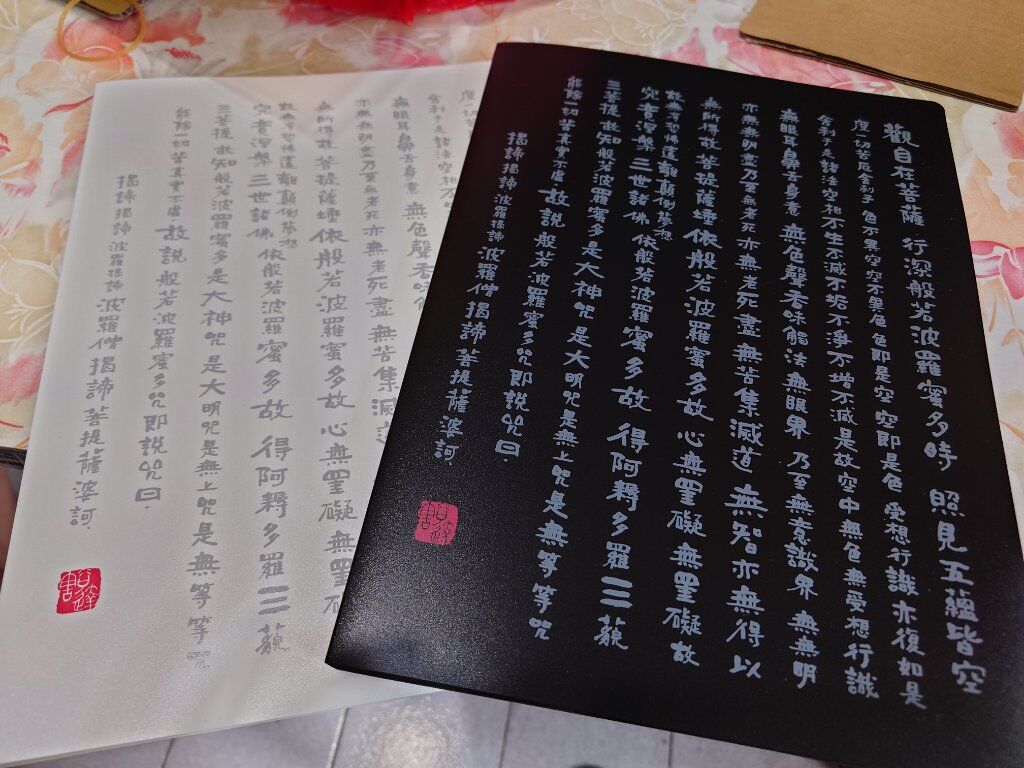 觀自在菩薩 行深般若波羅蜜多時 照見五蘊皆空
度一切苦厄舍利子 色不異空空不異色色即是空 空即是色 受想行識亦復如是
舍利子是諸法空相不生不滅不垢不淨不增不減是故空中無色無受想行識
無眼耳鼻舌身意 無色聲香味觸法無眼界 乃至無意識界 無無明
亦無無明盡乃至無老死亦無老死盡無苦集滅道 無智亦無得以
無所得故菩提薩埵依般若波羅蜜多故 心無罣礙無罣礙故
故無有恐怖遠離顛倒夢想
究竟涅槃三世諸佛 依般若波羅蜜多故 得阿耨多羅三藐
三菩提 故知般若波羅蜜多是大神咒 是大明咒是無上咒是無等等咒
能除一切苦真實不虛 故說般若波羅蜜多咒即說咒曰.
揭諦揭諦 波羅揭諦 波羅僧揭諦菩提薩婆訶.
度一切
舍利子是諸法空相不
無眼耳鼻舌身意 無色聲香味
亦無無明盡乃至無老死 亦無老死盡無苦集滅道
無所得故菩提薩埵依般若波羅蜜多故 心無罣礙無罣
故無有恐怖遠離顛倒夢想
究竟涅槃 三世諸佛 依般若波羅蜜多故 得阿耨多羅三藐
三菩提 故知般若波羅蜜多是大神咒 是大明咒是無上咒是無等等咒
能除一切苦真實不虛 故說般若波羅蜜多咒即說咒曰.
揭諦揭諦 波羅揭諦 波羅僧揭諦菩提薩婆訶.